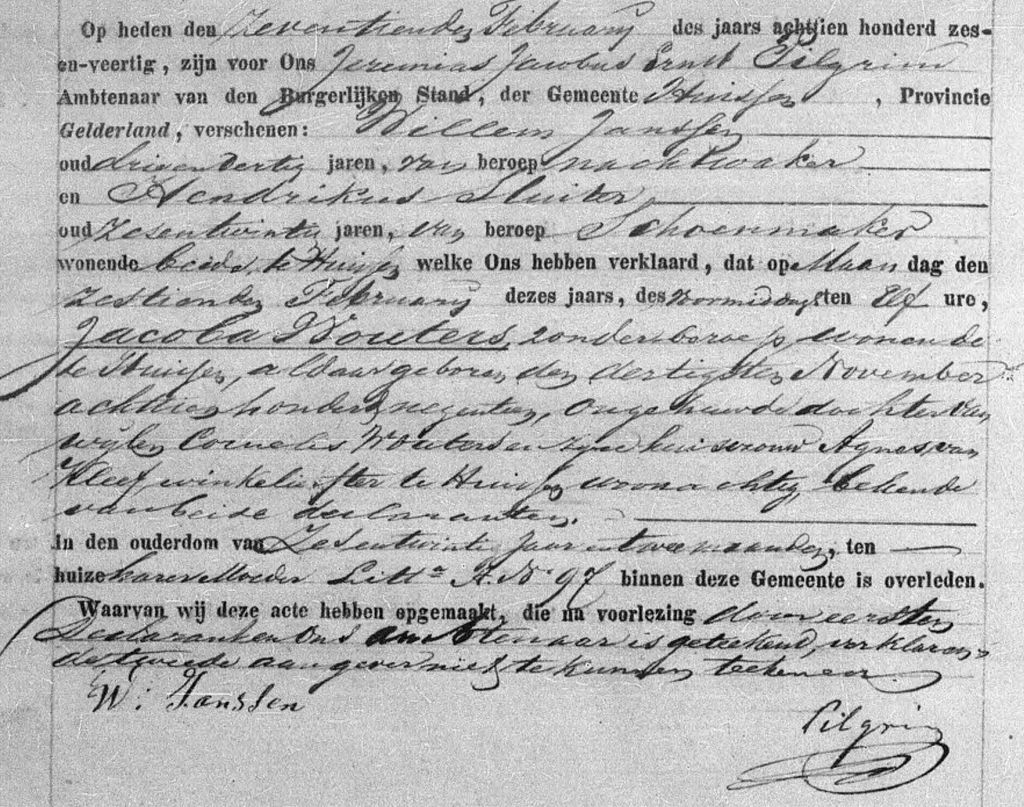 Op heden den Zeventienden February des jaars achttien honderd zes-
en-veertig, zijn voor Ons Jeremias Jacobus Ernst Pilgrim
Ambtenaar van den Burgerlijken Stand, der Gemeente Huissen, Provincie
Gelderland, verschenen: Willem Janssen
oud drieendertig jaren, van beroep nachtwaker
en Hendrikus Sluiter
oud zesentwintig jaren, van beroep Schoenmaker
wonende beide te Huissen welke Ons hebben verklaard, dat op Maandag den
zestienden February dezes jaars, des voormiddags ten Elf ure,
Jacoba Wouters, zonder beroep wonende
te Huissen, aldaar geboren den dertigsten November
achttien honderd negentien, ongehuwde dochter van
wijlen Cornelis Wouters en zyne huisvrouw Agnes van
Kleef winkelierster te Huissen woonachtig, bekende
van beide declaranten.
In den ouderdom van Zesentwintig Jaar en twee maanden, ten
huize harer Moeder Litta A. No 97 binnen deze Gemeente is overleden.
Waarvan wij deze acte hebben opgemaakt, die na voorlezing door eersten
Declarant en Ons Ambtenaar is geteekend, verklaren-
de tweede aangever niet te kunnen teekenen.
W: Janssen
Pilgrim